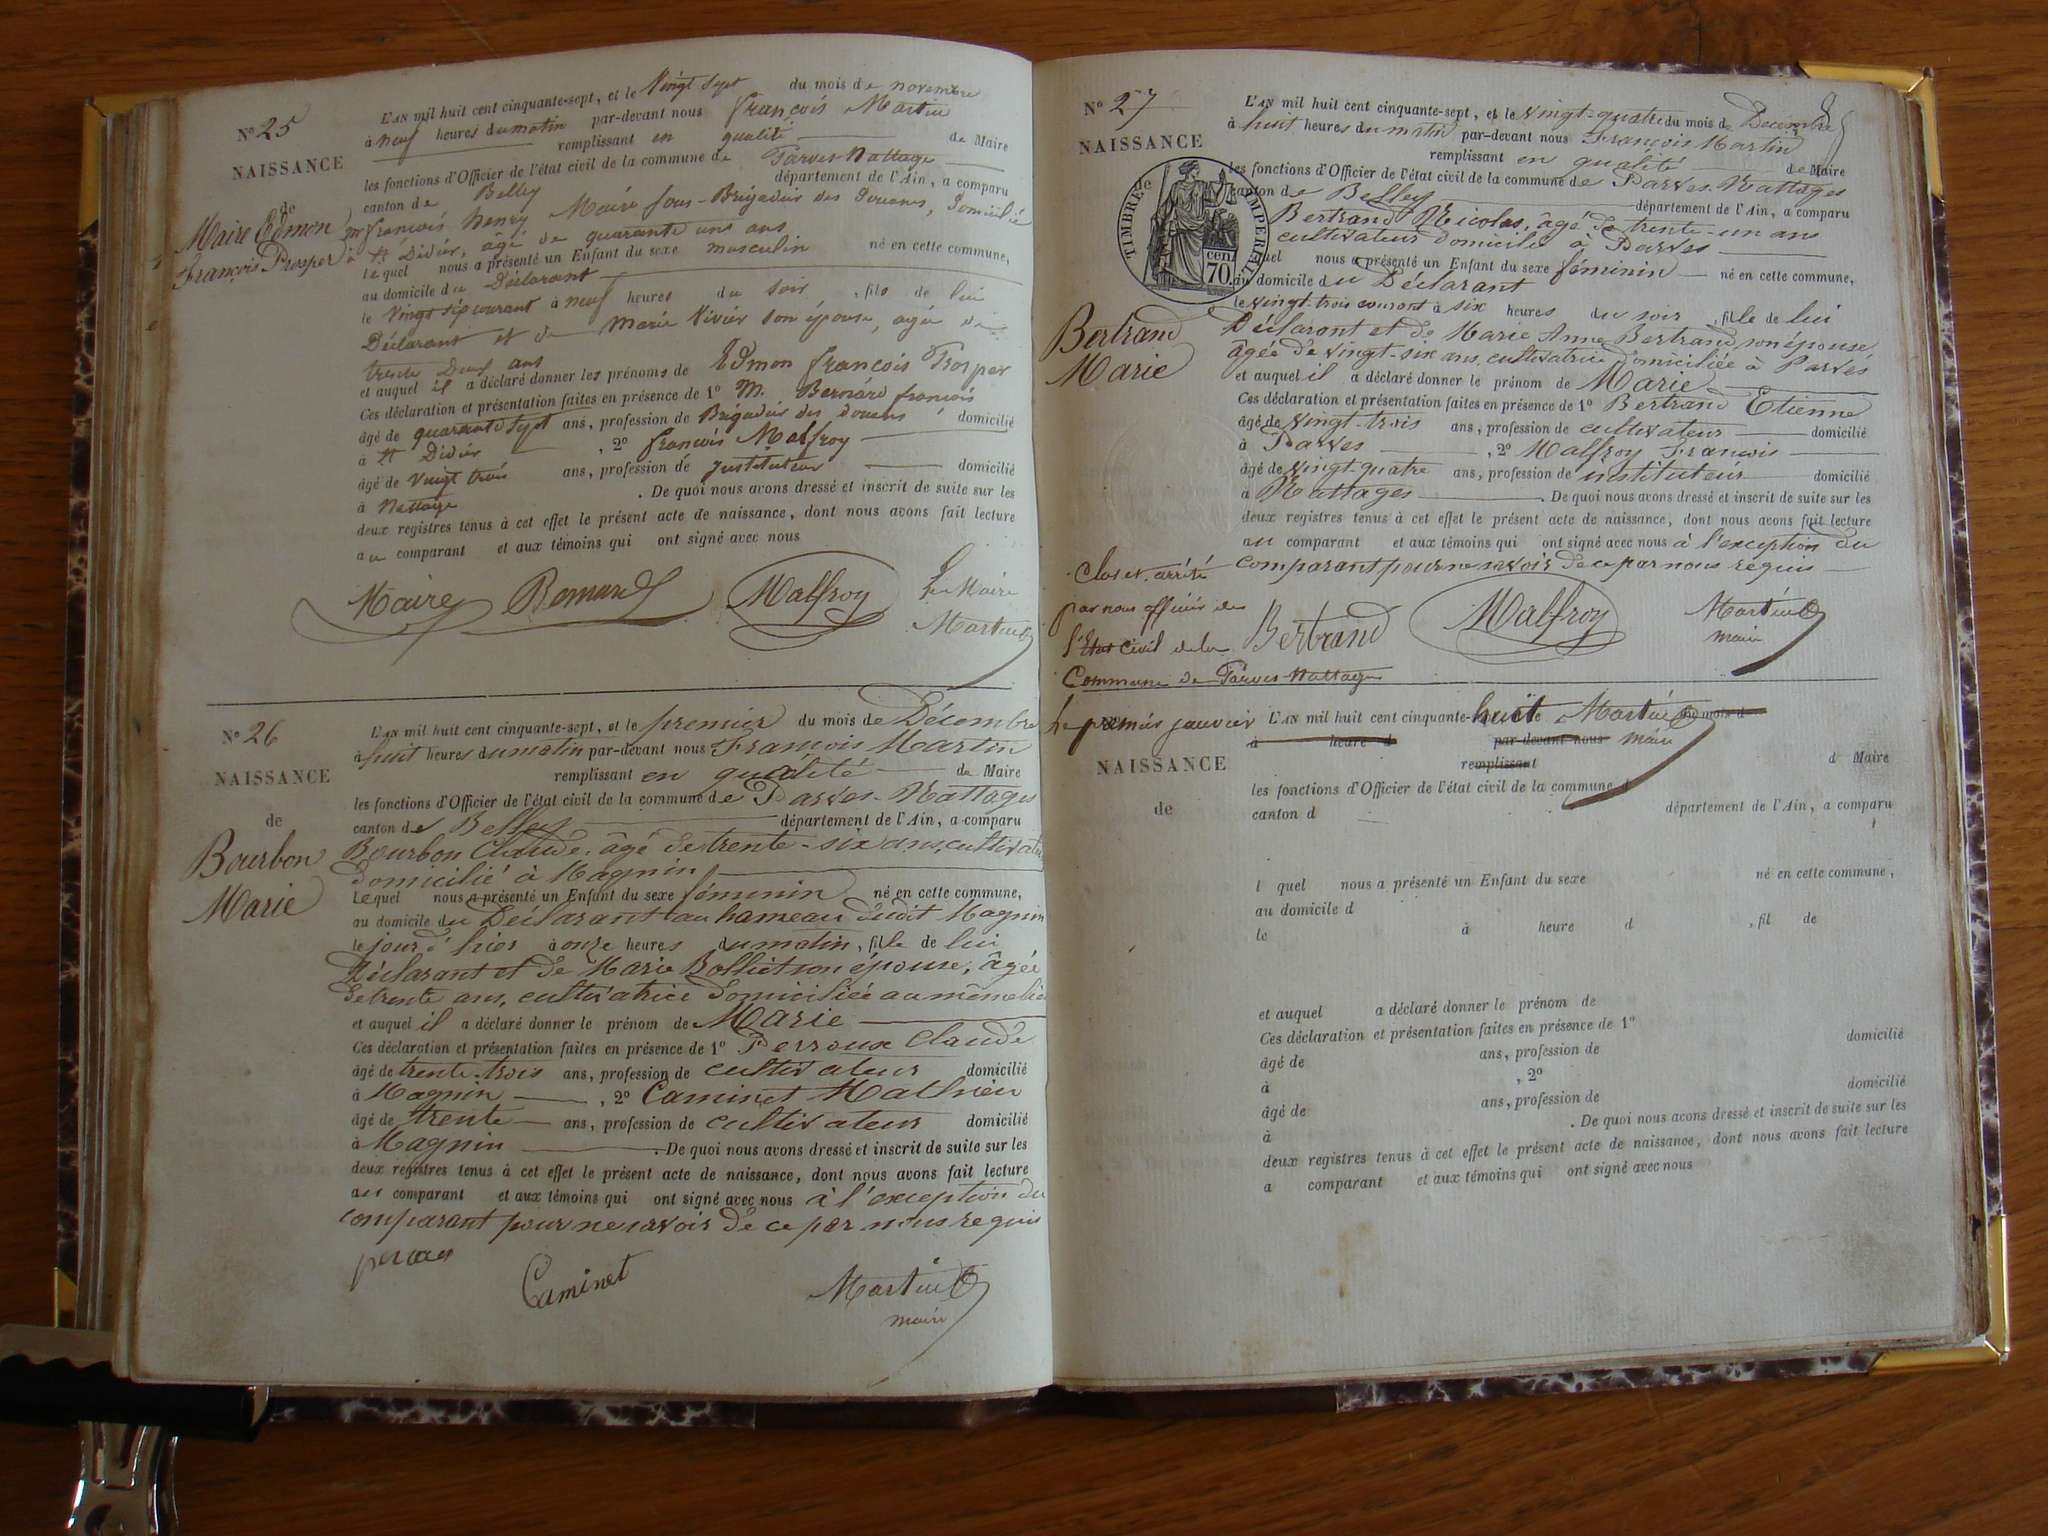 N° 25
NAISSANCE
de
Maire Edmon
François Prosper
L'AN mil huit cent cinquante-sept, et le Vingt Sept du mois de novembre
à neuf heures du matin par-devant nous François Martin
remplissant en qualité de Maire
les fonctions d'Officier de l'état civil de la commune de Parves Nattage
canton de Belley département de l'Ain, a comparu
françois henry Maire Sous-Brigadier des Douanes, Domicilié
à St Didier, âgé de quarante uns ans
lequel nous a présenté un Enfant du sexe masculin né en cette commune,
au domicile du Déclarant
le Vingt Sep courant à neuf heures du soir, fils de lui
Déclarant et de Marie Vivier son épouse, agée de
trente Deux ans
et auquel il a déclaré donner les prénoms de Edmon françois Prosper
Ces déclaration et présentation faites en présence de 1° M. Bernard françois
âgé de quarante Sept ans, profession de Brigadier des douanes domicilié
à St Didier, 2° françois Malfroy
âgé de Vingt trois ans, profession de Instituteur domicilié
à Nattage. De quoi nous avons dressé et inscrit de suite sur les
deux registres tenus à cet effet le présent acte de naissance, dont nous avons fait lecture
au comparant et aux témoins qui ont signé avec nous
Maire Bernard Malfroy Le Maire
Martin
N° 26
NAISSANCE
de
Bourbon
Marie
L'AN mil huit cent cinquante-sept, et le premier du mois de Décembre
à huit heures du matin par-devant nous François Martin
remplissant en qualité de Maire
les fonctions d'Officier de l'état civil de la commune de Parves-Nattages
canton de Belley département de l'Ain, a comparu
Bourbon Claude, âgé de trente-six ans, cultivateur
domicilié à Magnin
Lequel nous a présenté un Enfant du sexe féminin né en cette commune,
au domicile du Déclarant au hameau dudit Magnin
le jour d'hier à onze heures du matin, fille de lui
Déclarant et de Marie Bolliet son épouse, âgée
de trente ans, cultivatrice domiciliée au même lieu
et auquel il a déclaré donner le prénom de Marie
Ces déclaration et présentation faites en présence de 1° Perroux Claude
âgé de trente-trois ans, profession de cultivateur domicilié
à Magnin, 2° Caminet Mathieu
âgé de trente ans, profession de cultivateur domicilié
à Magnin. De quoi nous avons dressé et inscrit de suite sur les
deux registres tenus à cet effet le présent acte de naissance, dont nous avons fait lecture
au comparant et aux témoins qui ont signé avec nous à l'exception du
comparant pour ne savoir de ce par nous requis
Caminet Martin
maire
N° 27
NAISSANCE
de
TIMBRE IMPERIAL
70 cen.
Bertrand
Marie
L'AN mil huit cent cinquante-sept, et le vingt-quatre du mois de Décembre
à huit heures du matin par-devant nous François Martin
remplissant en qualité de Maire
les fonctions d'Officier de l'état civil de la commune de Parves-Nattages
canton de Belley département de l'Ain, a comparu
Bertrand Nicolas, âgé de trente-un ans
cultivateur domicilié à Parves
lequel nous a présenté un Enfant du sexe féminin né en cette commune,
au domicile du Déclarant
le vingt-trois courant à six heures du soir, fille de lui
Déclarant et de Marie Anne Bertrand son épouse
âgée de vingt-six ans, cultivatrice domiciliée à Parves
et auquel il a déclaré donner le prénom de Marie
Ces déclaration et présentation faites en présence de 1° Bertrand Etienne
âgé de vingt-trois ans, profession de cultivateur domicilié
à Parves, 2° Malfroy François
âgé de vingt-quatre ans, profession de instituteur domicilié
à Nattages. De quoi nous avons dressé et inscrit de suite sur les
deux registres tenus à cet effet le présent acte de naissance, dont nous avons fait lecture
au comparant et aux témoins qui ont signé avec nous à l'exception du
comparant pour ne savoir de ce par nous requis
Bertrand Malfroy Martin
maire
Clos et arrêté
par nous officier de
l'Etat civil de la
Commune de Parves Nattage
Le premier janvier L'AN mil huit cent cinquante-huit Martin du mois d
à heure d par-devant nous maire
NAISSANCE
de
remplissant d Maire
les fonctions d'Officier de l'état civil de la commune d
canton d département de l'Ain, a comparu
l quel nous a présenté un Enfant du sexe né en cette commune,
au domicile d
le à heure d, fil de
et auquel a déclaré donner le prénom de
Ces déclaration et présentation faites en présence de 1°
âgé de ans, profession de domicilié
à, 2°
âgé de ans, profession de domicilié
à. De quoi nous avons dressé et inscrit de suite sur les
deux registres tenus à cet effet le présent acte de naissance, dont nous avons fait lecture
a comparant et aux témoins qui ont signé avec nous